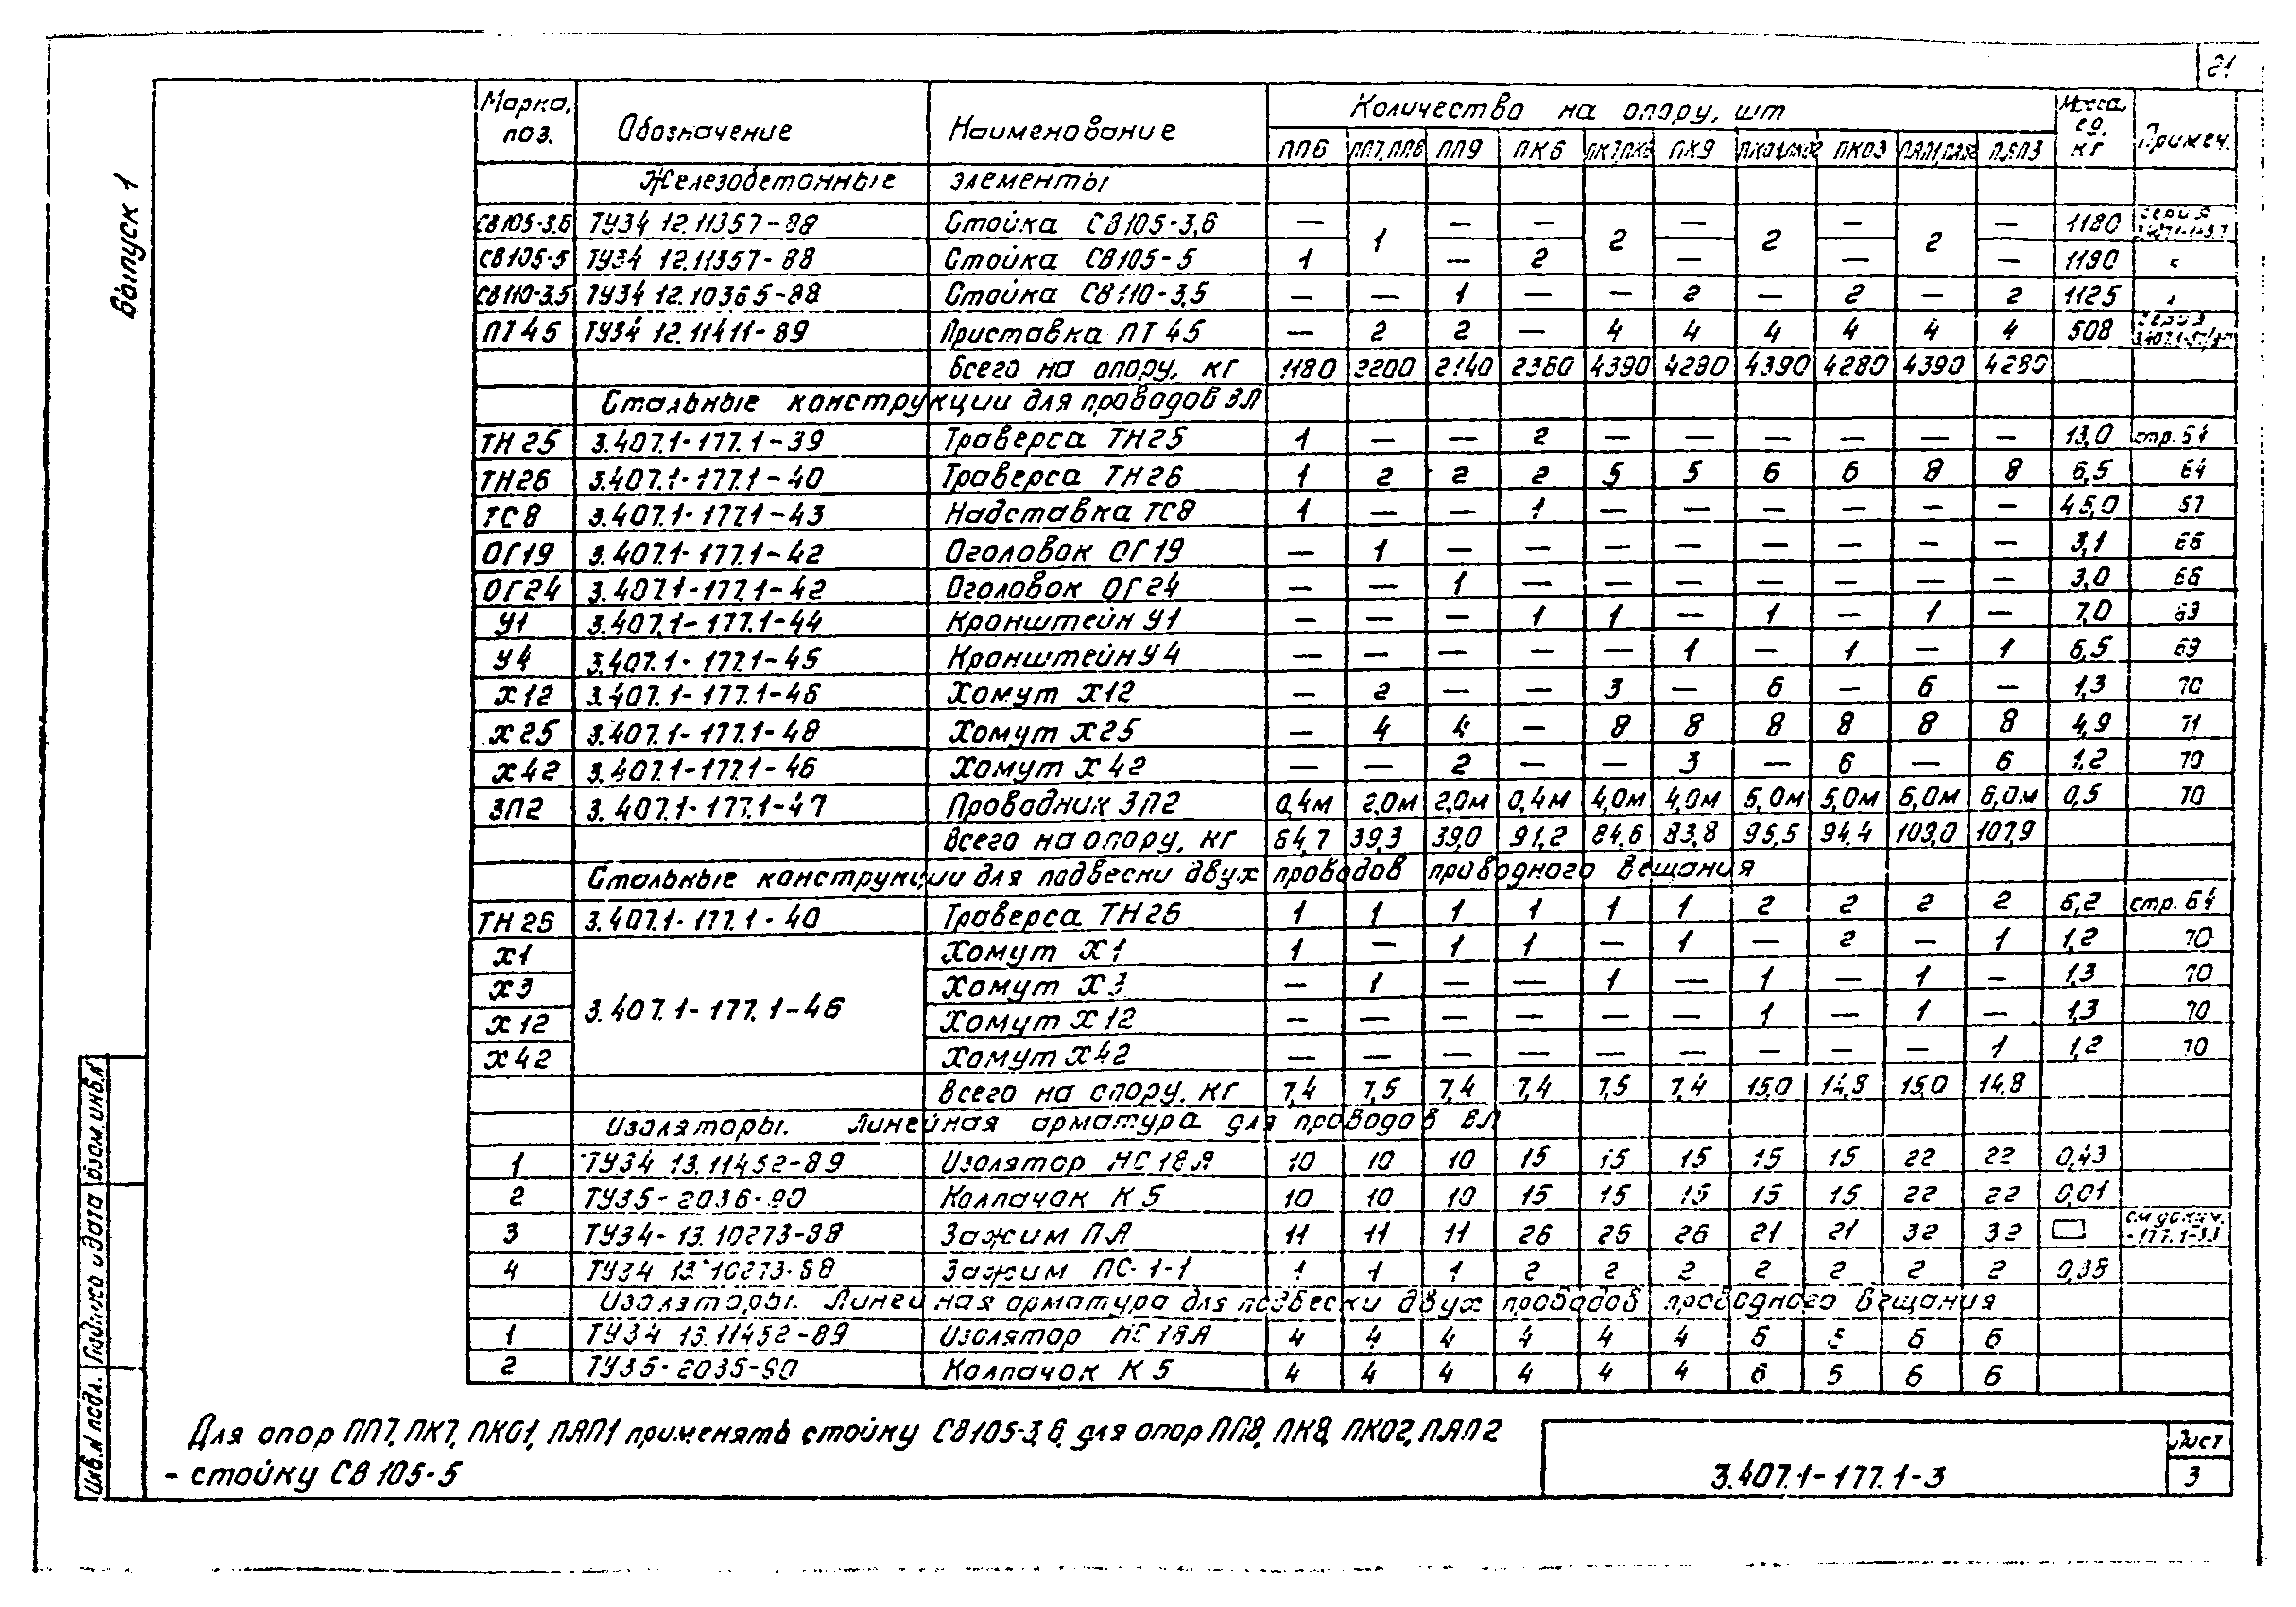 21
Выпуск 1
Марка, поз. Обозначение Наименование Количество на опору, шт Масса ед. кг Примеч.
ПП6 ПП7, ПП8 ПП9 ПК6 ПК7, ПК8 ПК9 ПК01, ПК02 ПК03 ПАП1, ПАП2 ПАП3
Железобетонные элементы
СВ105-3,6 ТУ34 12.11357-88 Стойка СВ105-3,6 — 1 — — 2 — 2 — 2 — 1180 серия
СВ105-5 ТУ34 12.11357-88 Стойка СВ105-5 1 — 2 — — — 1180 "
СВ110-3,5 ТУ34 12.10365-88 Стойка СВ110-3,5 — — 1 — — 2 — 2 — 2 1125 "
ПТ45 ТУ34 12.11411-89 Приставка ПТ45 — 2 2 — 4 4 4 4 4 4 508 серия
Всего на опору, кг 1180 2200 2140 2360 4390 4280 4390 4280 4390 4280
Стальные конструкции для проводов ВЛ
ТН25 3.407.1-177.1-39 Траверса ТН25 1 — — 2 — — — — — — 13,0 стр. 64
ТН26 3.407.1-177.1-40 Траверса ТН26 1 2 2 2 5 5 6 6 8 8 6,5 64
ТС8 3.407.1-177.1-43 Надставка ТС8 1 — — 1 — — — — — — 45,0 57
ОГ19 3.407.1-177.1-42 Оголовок ОГ19 — 1 — — — — — — — — 3,1 66
ОГ24 3.407.1-177.1-42 Оголовок ОГ24 — — 1 — — — — — — — 3,0 66
У1 3.407.1-177.1-44 Кронштейн У1 — — — 1 1 — 1 — 1 — 7,0 69
У4 3.407.1-177.1-45 Кронштейн У4 — — — — — 1 — 1 — 1 6,5 69
Х12 3.407.1-177.1-46 Хомут Х12 — 2 — — 3 — 6 — 6 — 1,3 70
Х25 3.407.1-177.1-48 Хомут Х25 — 4 4 — 8 8 8 8 8 8 4,9 71
Х42 3.407.1-177.1-46 Хомут Х42 — — 2 — — 3 — 6 — 6 1,2 70
ЗП2 3.407.1-177.1-47 Проводник ЗП2 0,4м 2,0м 2,0м 0,4м 4,0м 4,0м 5,0м 5,0м 6,0м 6,0м 0,5 70
Всего на опору, кг 64,7 39,3 39,0 91,2 84,6 83,8 95,5 94,4 109,0 107,9
Стальные конструкции для подвески двух проводов проводного вещания
ТН26 3.407.1-177.1-40 Траверса ТН26 1 1 1 1 1 1 2 2 2 2 6,2 стр. 64
Х1 Хомут Х1 1 — 1 1 — 1 — 2 — 1 1,2 70
Х3 Хомут Х3 — 1 — — 1 — 1 — 1 — 1,3 70
3.407.1-177.1-46
Х12 Хомут Х12 — — — — — — 1 — 1 — 1,3 70
Х42 Хомут Х42 — — — — — — — — — 1 1,2 70
Всего на опору, кг 7,4 7,5 7,4 7,4 7,5 7,4 15,0 14,8 15,0 14,8
Изоляторы. Линейная арматура для проводов ВЛ
1 ТУ34 13.11452-89 Изолятор НС18А 10 10 10 15 15 15 15 15 22 22 0,43
2 ТУ35-2036-90 Колпачок К5 10 10 10 15 15 15 15 15 22 22 0,01
3 ТУ34-13.10273-88 Зажим ПА 11 11 11 26 26 26 21 21 32 32 см докум. -177.1-33
4 ТУ34 13.10273-88 Зажим ПС-1-1 1 1 1 2 2 2 2 2 2 2 0,38
Изоляторы. Линейная арматура для подвески двух проводов проводного вещания
1 ТУ34 13.11452-89 Изолятор НС18А 4 4 4 4 4 4 6 6 6 6
2 ТУ35-2035-90 Колпачок К5 4 4 4 4 4 4 6 6 6 6
Для опор ПП7, ПК7, ПК01, ПАП1 применять стойку СВ105-3,6, для опор ПП8, ПК8, ПК02, ПАП2
- стойку СВ 105-5
3.407.1-177.1-3
Лист
3
Инв.№ подл. Подпись и дата Взам.инв.№